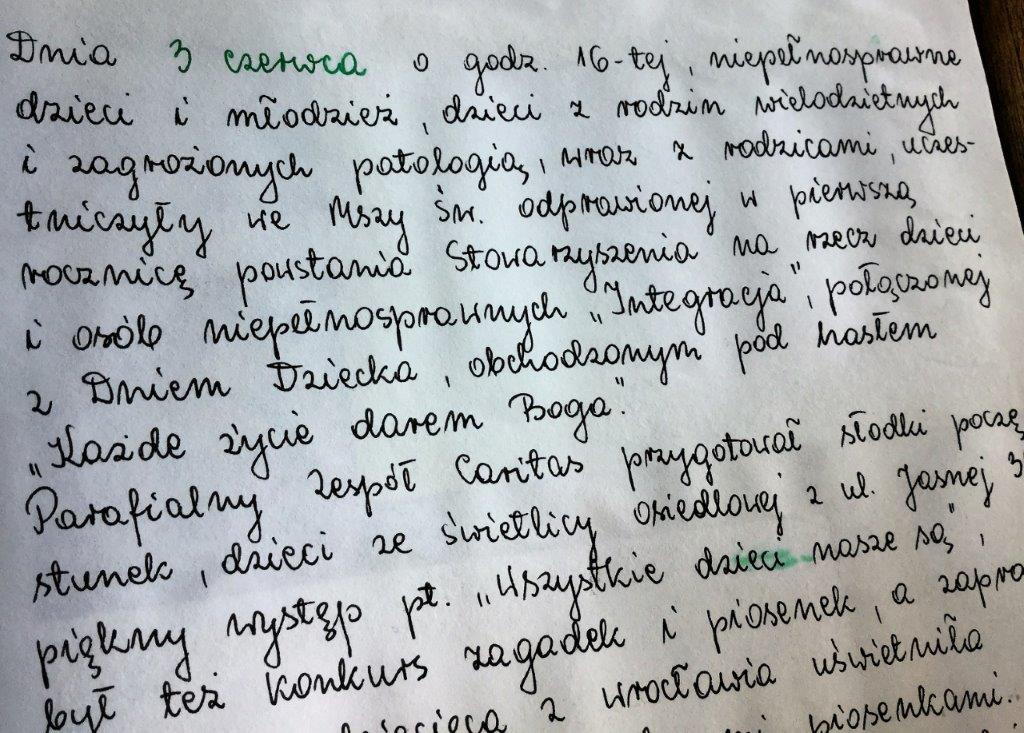 Dnia 3 czerwca o godz. 16-tej, niepełnosprawne
dzieci i młodzież, dzieci z rodzin wielodzietnych
i zagrożonych patologią, wraz z rodzicami, uczes-
tniczyły we Mszy Św. odprawionej w pierwszą
rocznicę powstania Stowarzyszenia na rzecz dzieci
i osób niepełnosprawnych „Integracja", połączonej
z Dniem Dziecka, obchodzonym pod hasłem
„Każde życie darem Boga".
Parafialny Zespół Caritas przygotował słodki poczę
stunek, dzieci ze świetlicy osiedlowej z ul. Jasnej
piękny występ pt. „Wszystkie dzieci nasze są",
był też konkurs zagadek i piosenek, a zapro
z Wrocławia uświetniła
piosenkami.